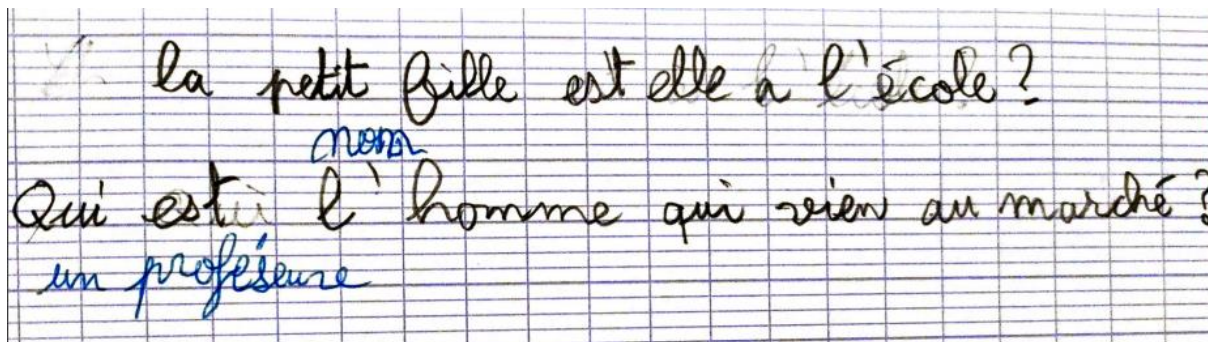 la petit fille est elle à l'école ?
nom
Qui est l'homme qui vien au marché ?
un profeseure